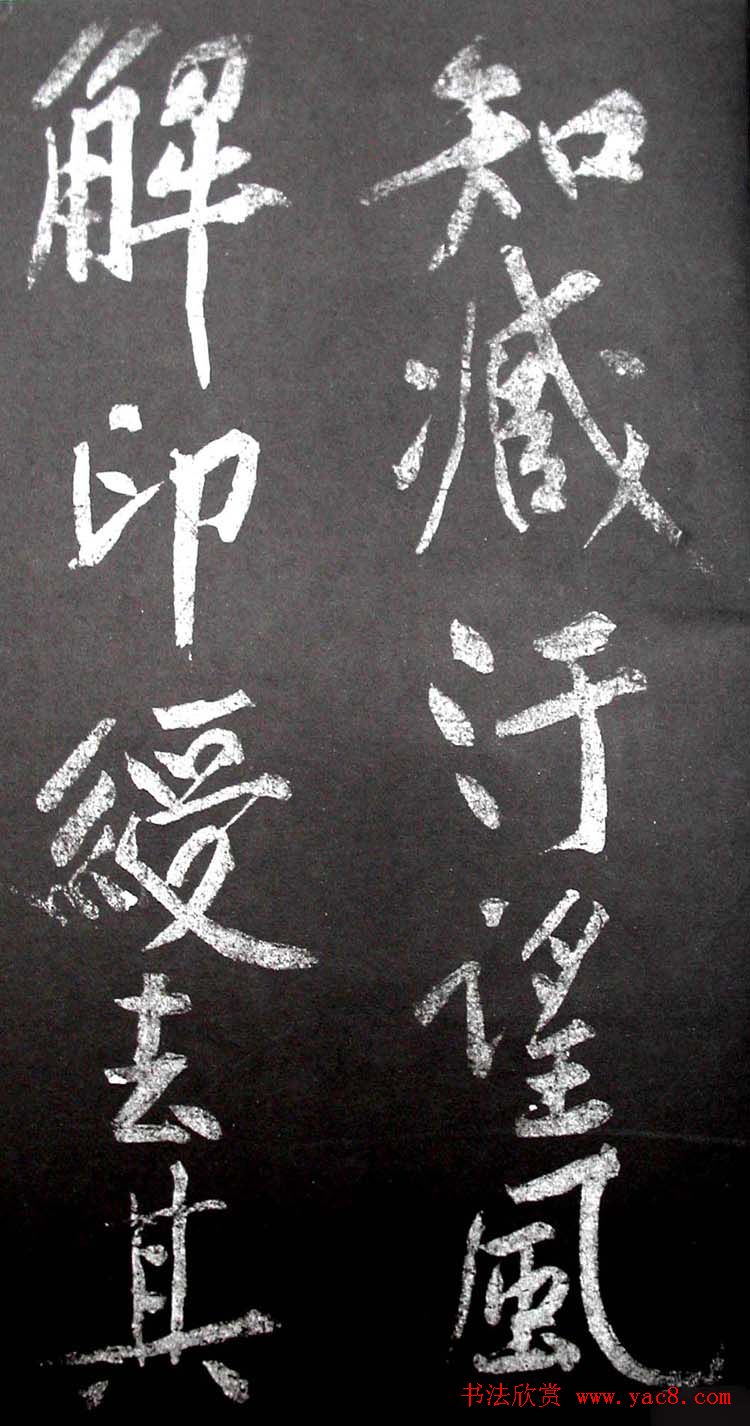 知臧汙望風
解印綬去其
书法欣赏 www.yac8.com